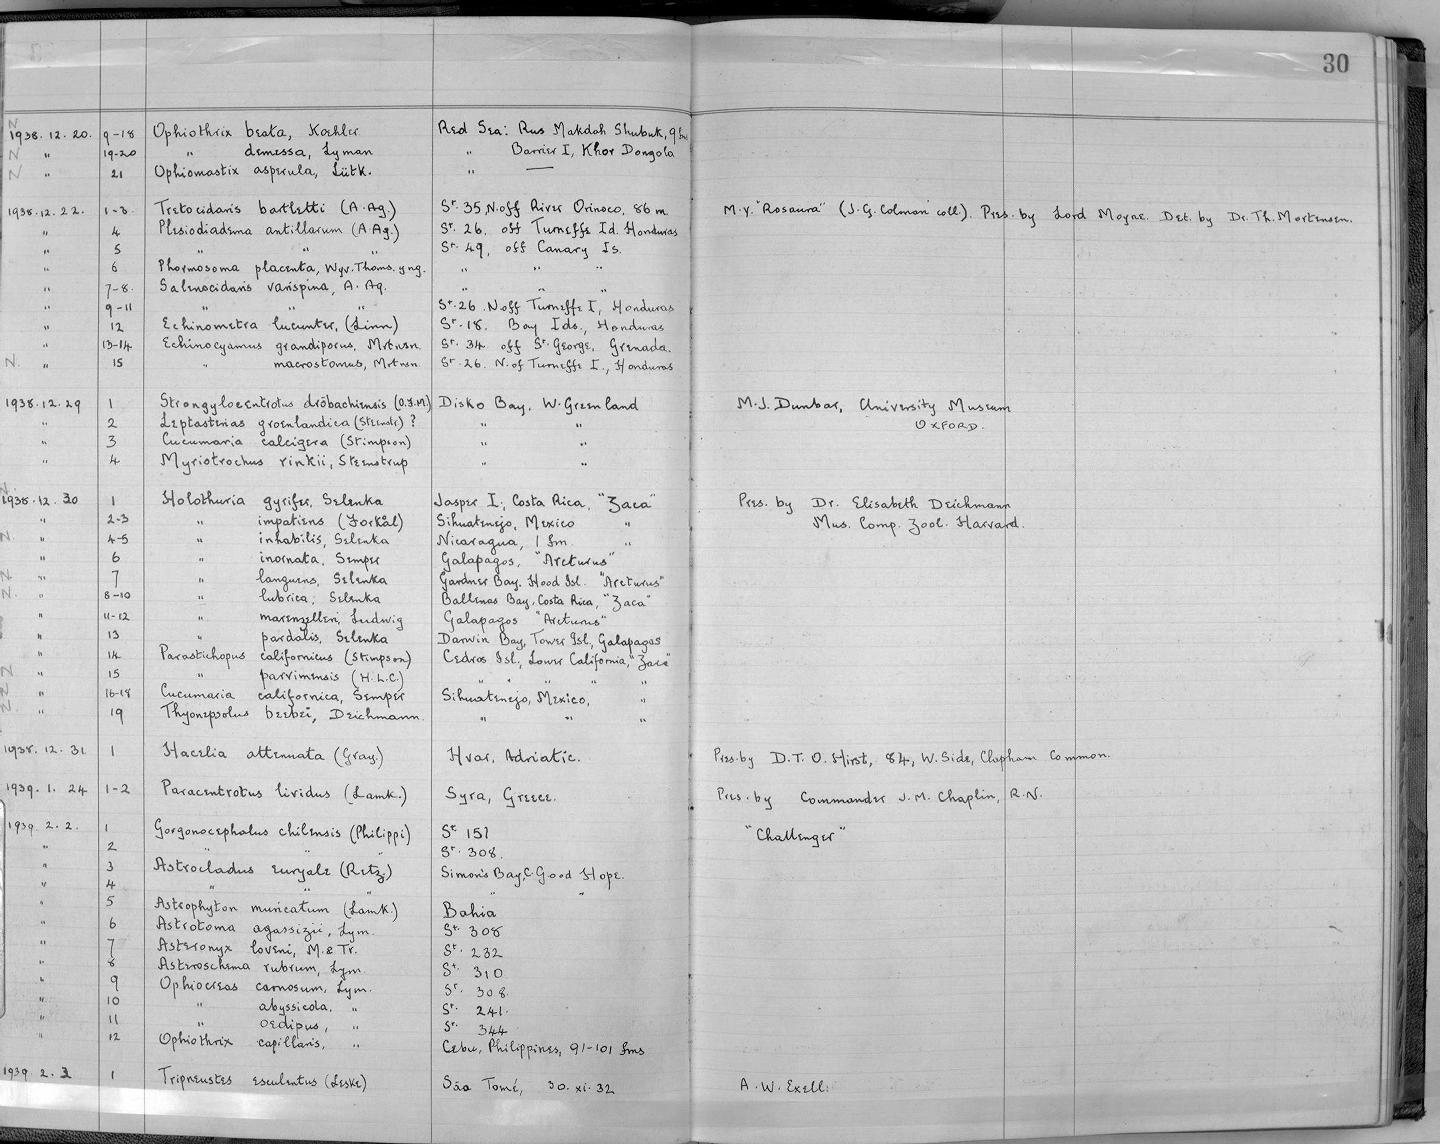 30
N
1938.12.20. 9-18 Ophiothrix beata, Koehler Red Sea: Rus Makdah Shubuk, 9 fms
N " 19-20 " demessa, Lyman " Barrier I, Khor Dongola
N " 21 Ophiomastix asperula, Lütk. " —
1938.12.22. 1-3. Tretocidaris bartletti (A.Ag.) St. 35, N.off River Orinoco, 86 m. M.Y. "Rosaura" (J.G. Colman coll). Pres. by Lord Moyne. Det. by Dr. Th. Mortensen.
" 4 Plesiodiadema antillarum (A.Ag.) St. 26. off Turneffe Id. Honduras
" 5 " " " St. 49, off Canary Is.
" 6 Phormosoma placenta, Wyv. Thoms. yng. " " "
" 7-8. Salenocidaris varispina, A.Ag. " " "
" 9-11 " " " St. 26. N.off Turneffe I, Honduras
" 12 Echinometra lucunter, (Linn) St. 18. Bay Ids., Honduras
" 13-14 Echinocyamus grandiporus, Mrtnsn. St. 34. off St. George, Grenada.
N. " 15 " macrostomus, Mrtnsn. St. 26. N.of Turneffe I., Honduras
1938.12.29 1 Strongylocentrotus dröbachiensis (O.F.M.) Disko Bay, W. Greenland M.J. Dunbar, University Museum
" 2 Leptasterias groenlandica (Steenstr) ? " " OXFORD.
" 3 Cucumaria calcigera (Stimpson) " "
" 4 Myriotrochus rinkii, Steenstrup " "
N.
1938.12.30 1 Holothuria gyrifer, Selenka Jasper I., Costa Rica, "Zaca" Pres. by Dr. Elisabeth Deichmann
" 2-3 " impatiens (Forkål) Sihuatenejo, Mexico " Mus. Comp. Zool. Harvard.
N. " 4-5 " inhabilis, Selenka Nicaragua, 1 fm. "
" 6 " inornata, Semper Galapagos, "Arcturus"
N " 7 " languens, Selenka Gardner Bay, Hood Isl. "Arcturus"
N. " 8-10 " lubrica, Selenka Ballenas Bay, Costa Rica, "Zaca"
" 11-12 " marenzelleri, Ludwig Galapagos "Arcturus"
" 13 " pardalis, Selenka Darwin Bay, Tower Isl, Galapagos
" 14 Parastichopus californicus (Stimpson) Cedros Isl., Lower California, "Zaca"
N " 15 " parvimensis (H.L.C.) " " " " "
N " 16-18 Cucumaria californica, Semper Sihuatenejo, Mexico, "
N. " 19 Thyonepsolus beebei, Deichmann. " " "
1938.12.31 1 Hacelia attenuata (Gray) Hvar, Adriatic. Pres. by D.T.O. Hirst, 84, W. Side, Clapham Common.
1939.1.24 1-2 Paracentrotus lividus (Lamk.) Syra, Greece. Pres. by Commander J.M. Chaplin, R.N.
1939.2.2. 1 Gorgonocephalus chilensis (Philippi) St. 151 "Challenger"
" 2 " " " St. 308.
" 3 Astrocladus euryale (Retz) Simon's Bay, C. Good Hope.
" 4 " " " " "
" 5 Astrophyton muricatum (Lamk.) Bahia
" 6 Astrotoma agassizii, Lym. St. 308
" 7 Asteronyx loveni, M. & Tr. St. 232
" 8 Asteroschema rubrum, Lym. St. 310
" 9 Ophiocreas carnosum, Lym. St. 308.
" 10 " abyssicola, " St. 241.
" 11 " oedipus, " St. 344
" 12 Ophiothrix capillaris, " Cebu, Philippines, 91-101 fms
1939.2.3 1 Tripneustes esculentus (Leske) São Tomé, 30.xi.32 A.W. Exell.